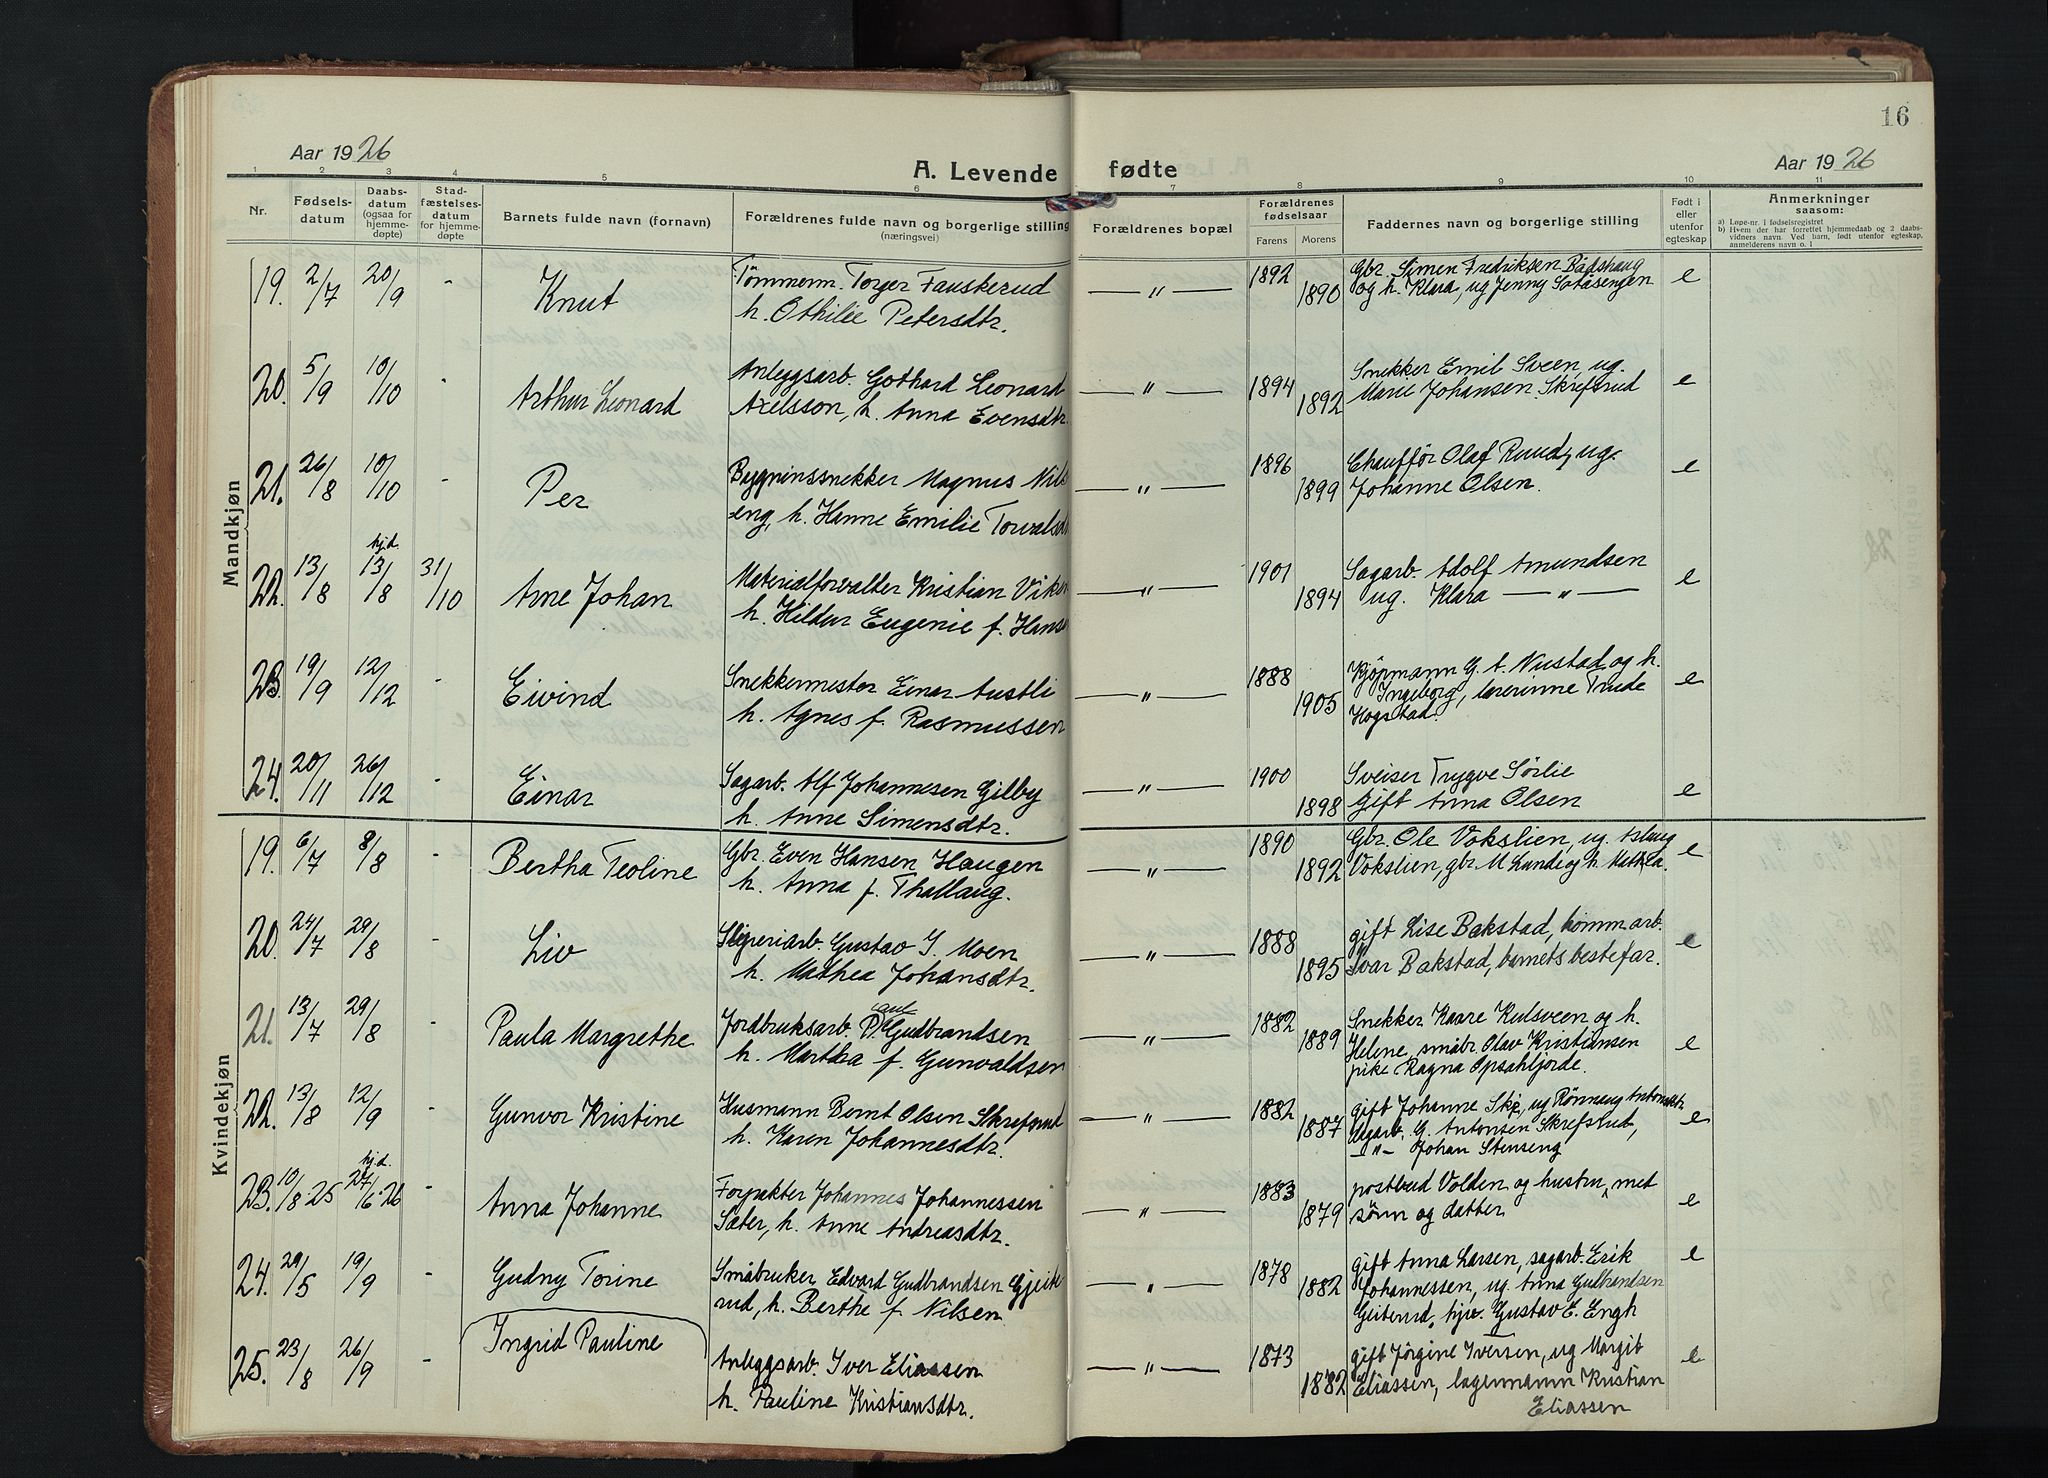 16
Aar 1926
A. Levende fødte
Aar 1926
1 2 3 4 5 6 7 8 9 10 11
Nr.
Fødsels-
datum
Daabs-
datum
(ogsaa for
hjemme-
døpte)
Stad-
fæstelses-
datum
for hjemme-
døpte
Barnets fulde navn (fornavn)
Forældrenes fulde navn og borgerlige stilling
(næringsvei)
Forældrenes bopæl
Forældrenes
fødselsaar
Farens Morens
Faddernes navn og borgerlige stilling
Født i
eller
utenfor
egteskap
Anmerkninger
saasom:
a) Løpe-nr. i fødselsregistret
b) Hvem der har forrettet hjemmedaab og 2 daabs-
vidners navn. Ved barn, født utenfor egteskap,
anmelderens navn o. l
Mandkjøn
19. 2/7 20/9 - Knut
Tömmerm. Torger Fauskerud
h. Othilie Petersdtr.
— " — 1892 1890
Gbr. Simen Fredriksen Bådshaug
og h. Klara, ug Jenny Sotåsengen
e
20. 5/9 10/10 - Arthur Leonard
Anleggsarb. Gothard Leonard
Axelsson, h. Anna Evensdtr.
— " — 1894 1892
Snekker Emil Sveen, ug.
Marie Johansen Skrefsrud
e
21. 26/8 10/10 - Per
Bygninssnekker Magnus Nils
eng, h. Hanne Emilie Torvalsd
— " — 1896 1899
Chauffør Olaf Ruud, ug.
Johanne Olsen.
e
22. 13/8 hj.d. 13/8 31/10 Arne Johan
Materialforvalter Kristian Vike
h. Hildur Eugenie f. Hans
— " — 1901 1894
Sagarb. Adolf Amundsen
ug. Klara — " —
e
23. 19/9 12/12 - Eivind
Snekkermester Einar Austli
h. Agnes f. Rasmussen
— " — 1888 1905
Kjøpmann G. A. Nustad og h.
Ingeborg, lærerinne Trude
Hogstad.
e
24. 20/11 26/12 - Einar
Sagarb. Alf Johannesen Gilby
h. Anne Simensdtr.
— " — 1900 1898
Sveiser Trygve Sørlie
Gift Anna Olsen
e
Kvindekjøn
19. 6/7 8/8 - Bertha Teoline
Gbr. Even Hansen Haugen
h. Anna f. Thallaug.
— " — 1890 1892
Gbr. Ole Vokslien, ug. Aslaug
Vokslien, gbr. M. Lunde og h. Mathea.
e
20. 24/7 29/8 - Liv
Sliperiarb. Gustav J. Moen
h. Mathea Johansdtr.
— " — 1888 1895
gift Lise Bakstad, komm.arb.
Ivar Bakstad, barnets bestefar.
e
21. 13/7 29/8 - Paula Margrethe
Jordbruksarb. Paul Gudbrandsen
h. Martha f. Gunvaldsen
— " — 1882 1889
Snekker Kaare Kulsveen og h.
Helene, småbr. Olav Kristiansen
pike Ragna Opsahljorde.
e
22. 13/8 12/9 - Gunvor Kristine
Husmann Bernt Olsen Skrefsrud
h. Karen Johannesdtr.
— " — 1882 1887
gift Johanne Skje, ug Rønnaug Antonsdtr.
Sagarb. G. Antonsen Skrefsrud,
— " — Johan Stenseng
e
23. 10/8 25 hj.d. 27/6 26 - Anna Johanne
Forpakter Johannes Johannessen
Sæter, h. Anne Andreasdtr.
— " — 1883 1879
postbud Volden og hustru, med
sønn og datter
e
24. 29/5 19/9 - Gudny Torine
Småbruker Edvard Gudbrandsen Gjeite
rud, h. Berthe f. Nilsen.
— " — 1878 1882
gift Anna Larsen, sagarb. Erik
Johannessen, ug. Anna Gulbrandsen
Geiterud, hjv. Gustav E. Engh
e
25. 23/8 26/9 - Ingrid Pauline
Anleggsarb. Iver Eliassen
h. Pauline Kristiansdtr.
— " — 1873 1882
gift Jørgine Iversen, ug Margit
Eliassen, lagermann Kristian
Eliassen
e